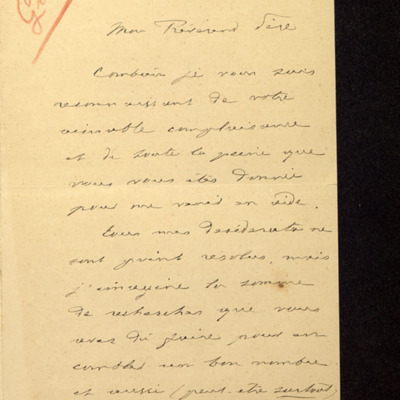 Mon Révérend Père
Combien je vous suis
reconnaissant de votre
aimable complaisance
et de toute la peine que
vous vous êtes donnée
pour me venir en aide.
Tous mes desiderata ne
sont point résolus, mais
j'imagine la somme
de recherches que vous
avez dû faire pour en
combler un bon nombre
et aussi (peut-être surtout